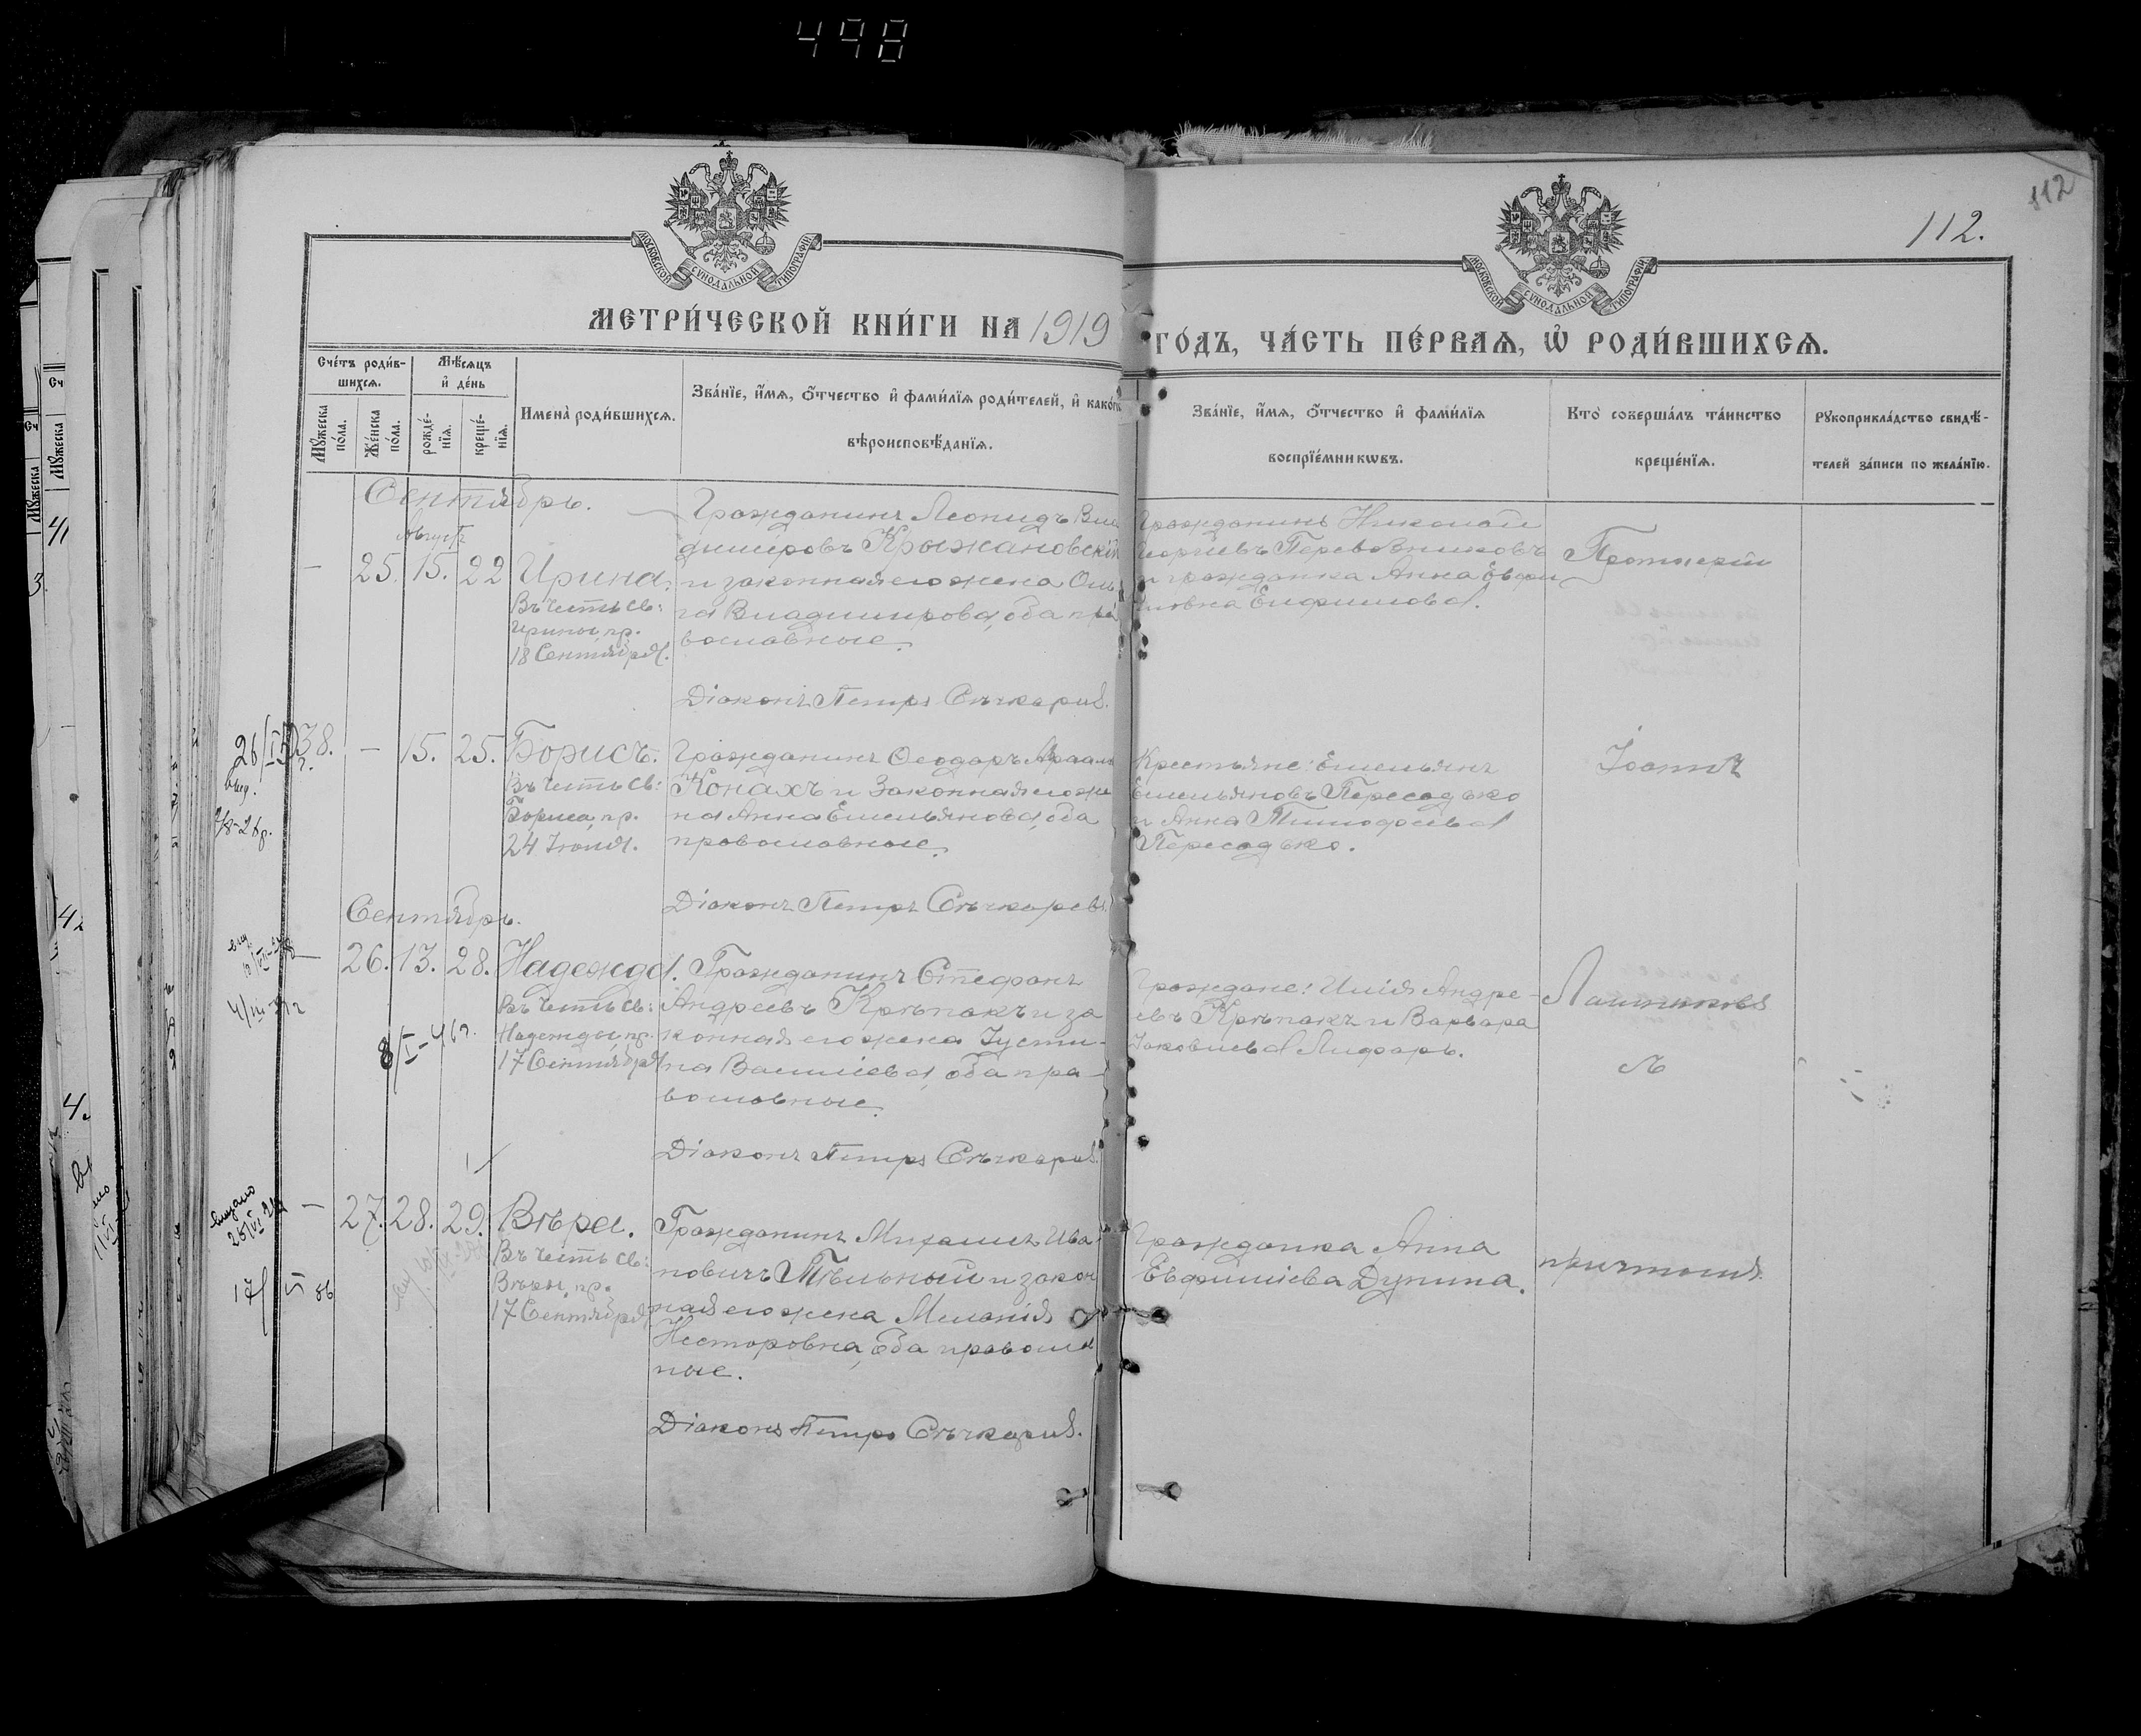 498
112
112.
МОСКОВСКОЙ СѴНОДАЛЬНОЙ ТИПОГРАФІИ
МОСКОВСКОЙ СѴНОДАЛЬНОЙ ТИПОГРАФІИ
МЕТРИ́ЧЕСКОЙ КНИ́ГИ НА 1919
ГО́ДЪ, ЧА́СТЬ ПЕ́РВАѦ, Ѽ РОДИ́ВШИХСѦ.
Сче́тъ роди́вшихсѧ.
Мѣ́сѧцъ и҆ де́нь
Мꙋ́жеска по́ла.
Же́нска по́ла.
рожде́нїѧ.
креще́нїѧ.
Имена̀ роди́вшихсѧ.
Зва́нїе, и҆́мѧ, ѻ҆́тчество и҆ фами́лїѧ роди́телей, и҆ како́гѡ
вѣроисповѣ́данїѧ.
Зва́нїе, и҆́мѧ, ѻ҆́тчество и҆ фами́лїѧ
воспрїе́мникѡвъ.
Кто̀ соверша́лъ та́инство
креще́нїѧ.
Рꙋкоприкла́дство свидѣ́-
телей за́писи по жела́нїю.
Сентябрь.
Августъ
— 25. 15. 22 Ирина.
Въ честь св:
Ирины, пр.
18 Сентября.
Гражданинъ Леонидъ Вла
диміровъ Крыжановскій
и законная его жена Оль
га Владимирова, оба пра
вославные.
Діаконъ Петръ Сѣчкаревъ.
Гражданинъ Николай
Георгіевъ Перевозниковъ
и гражданка Анна Евфи
мовна Ефимова.
Протоіерей
38. — 15. 25. Борисъ.
Въ честь св:
Бориса, пр.
24 Іюля.
Гражданинъ Ѳеодоръ
Конахъ и законная его же
на Анна Емельянова, оба
православные.
Діаконъ Петръ Сѣчкаревъ.
Крестьяне: Емельянъ
Емельяновъ Пересадько
и Анна Тимофеева
Пересадько.
Іоаннъ
Сентябрь.
— 26. 13. 28. Надежда.
Въ честь св:
Надежды, пр.
17 Сентября
Гражданинъ Стефанъ
Андреевъ Крѣпакъ и за
конная его жена Іусти-
на Василіева, оба пра-
вославные.
Діаконъ Петръ Сѣчкаревъ.
Граждане: Илія Андре-
евъ Крѣпакъ и Варвара
Іаковлева Лифарь.
8/I-46г.
— 27. 28. 29. Вѣра.
Въ честь св:
Вѣры, пр.
17 Сентября
Гражданинъ Михаилъ Ива
новичъ Пѣльный и закон
ная его жена Меланія
Несторовна, оба православ
ные.
Діаконъ Петръ Сѣчкаревъ.
Гражданка Анна
Евфиміева Дупина.
причтомъ.